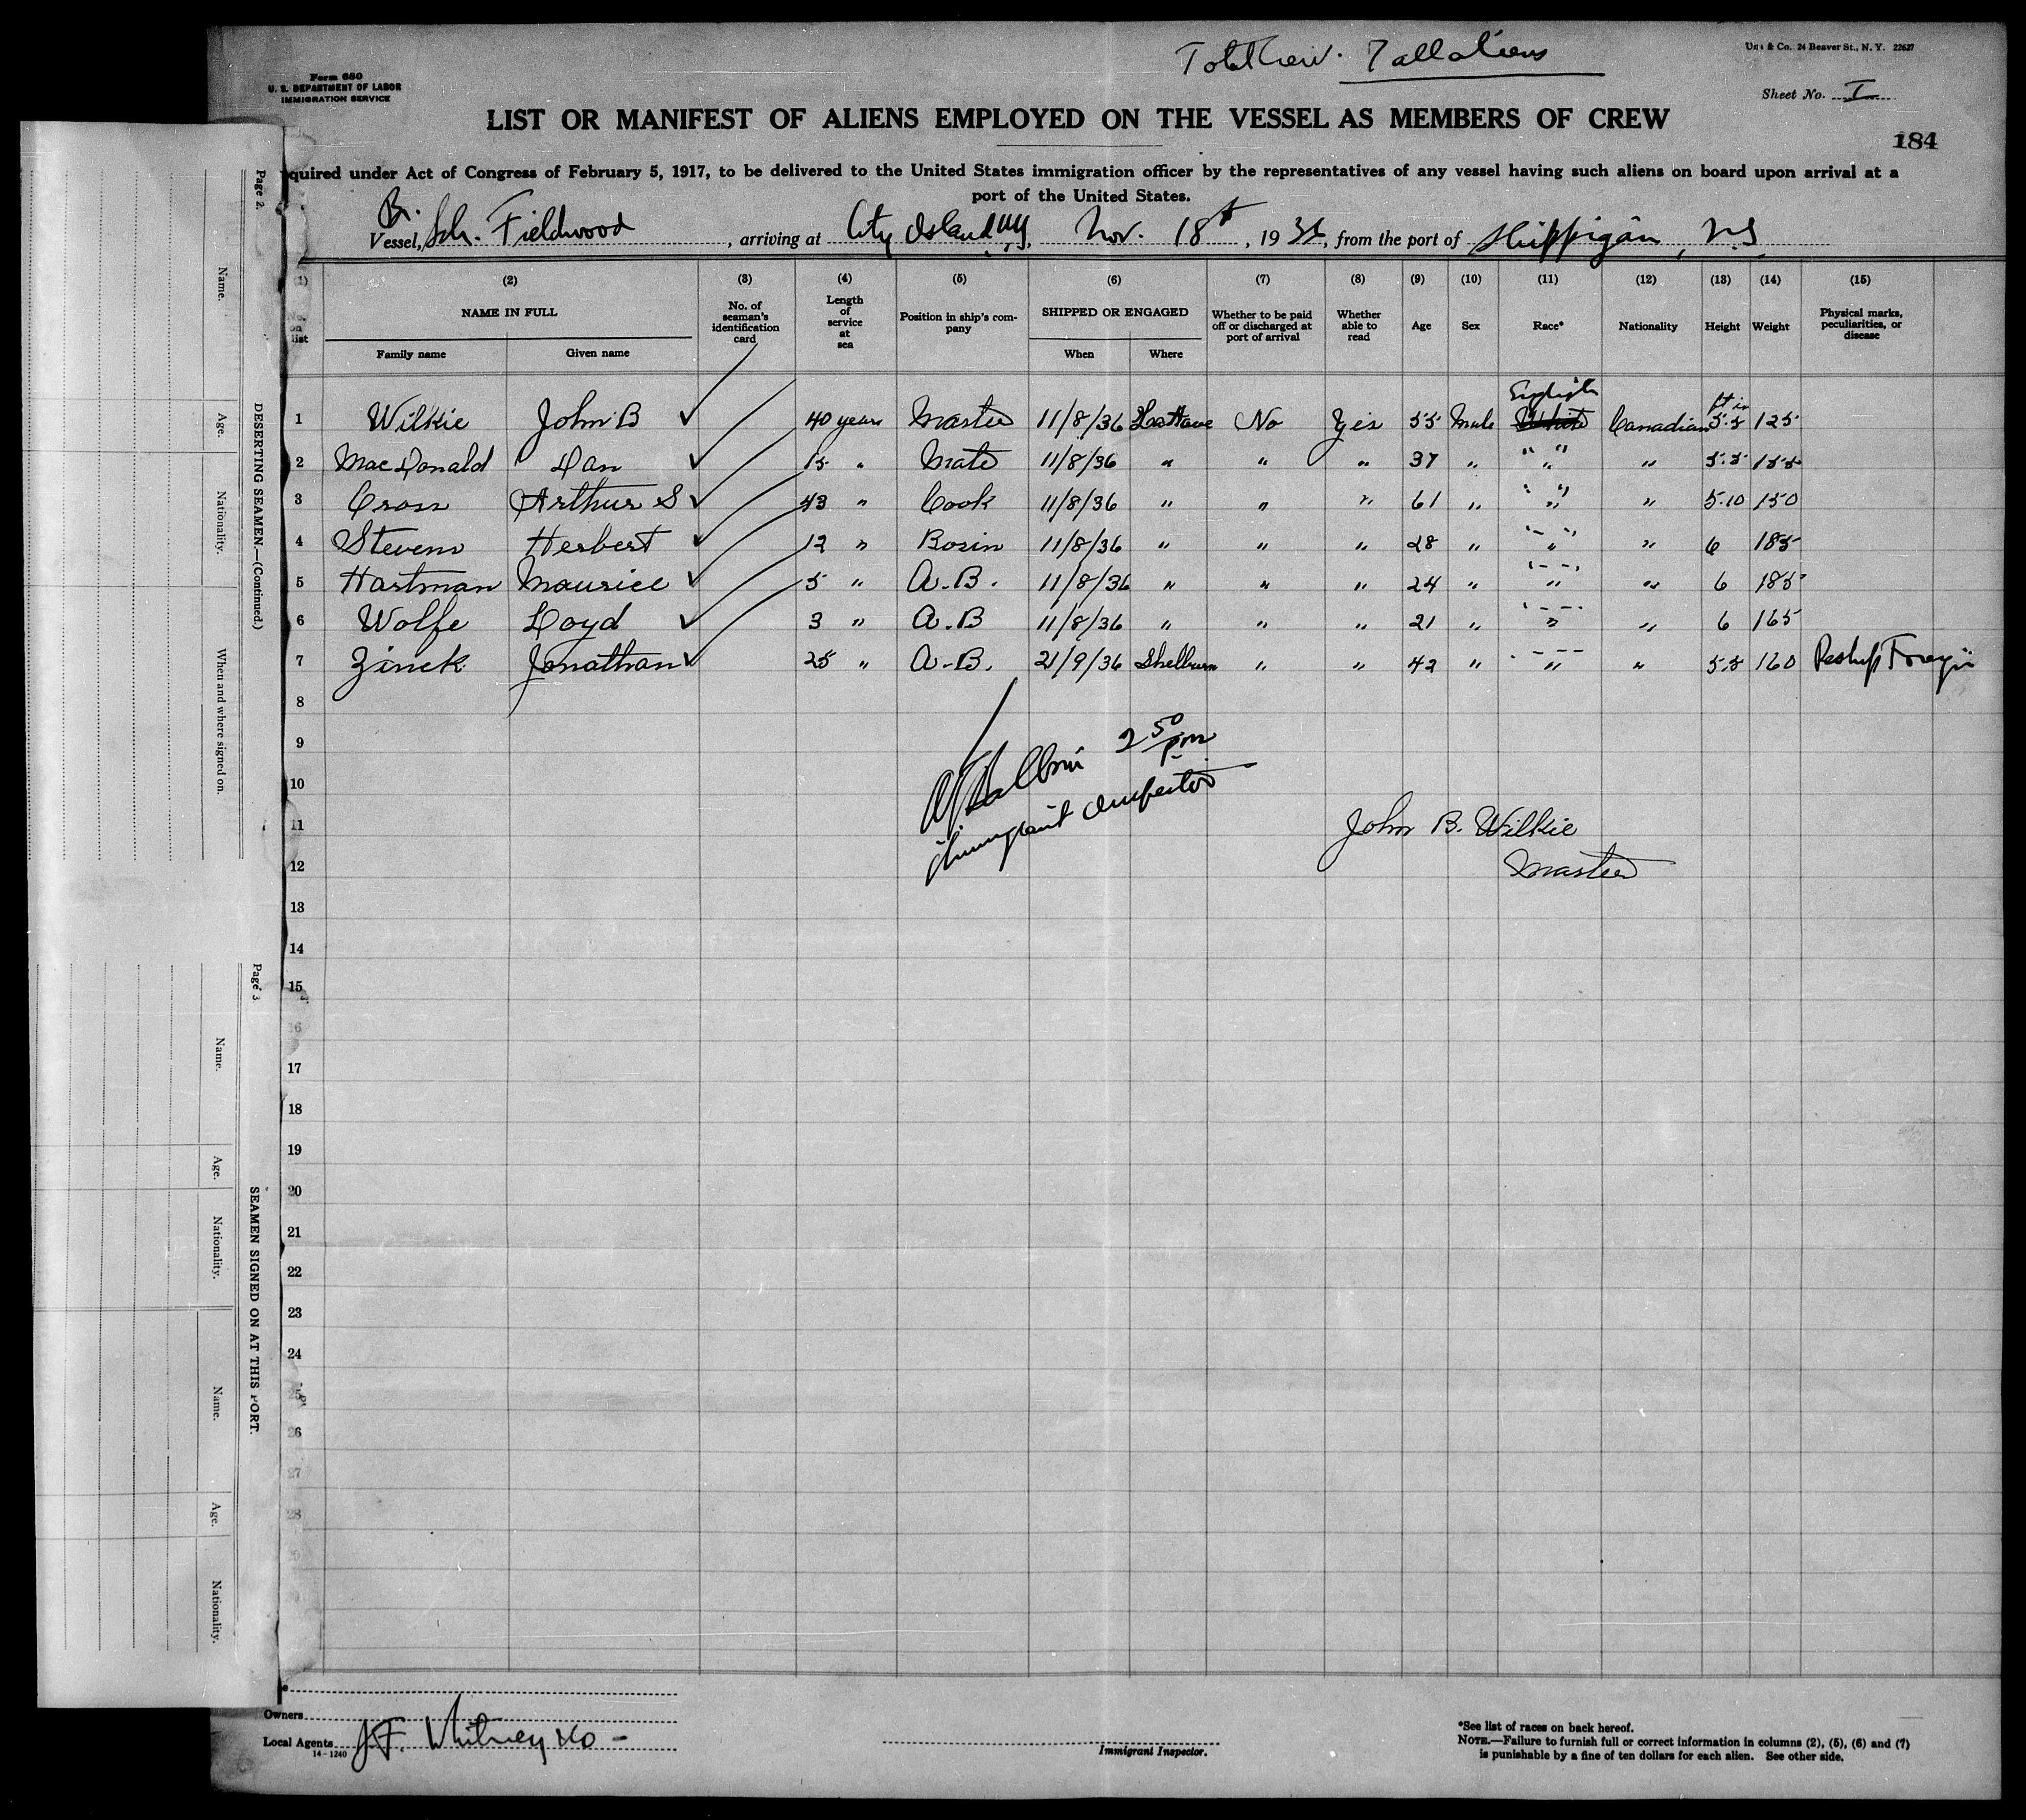 Total Crew. 7 all aliens
Form 680
U. S. DEPARTMENT OF LABOR
IMMIGRATION SERVICE
& Co. 24 Beaver St., N. Y. 22627
Sheet No. I
LIST OR MANIFEST OF ALIENS EMPLOYED ON THE VESSEL AS MEMBERS OF CREW
184
quired under Act of Congress of February 5, 1917, to be delivered to the United States immigration officer by the representatives of any vessel having such aliens on board upon arrival at a
port of the United States.
Vessel, Br. Sch. Fieldwood, arriving at City Island NY, Nov. 18th, 1936, from the port of Shippigan, N.S
(1) (2) (3) (4) (5) (6) (7) (8) (9) (10) (11) (12) (13) (14) (15)
No. on list NAME IN FULL Family name Given name No. of seaman's identification card Length of service at sea Position in ship's company SHIPPED OR ENGAGED When Where Whether to be paid off or discharged at port of arrival Whether able to read Age Sex Race* Nationality Height Weight Physical marks, peculiarities, or disease
English ft in
1 Wilkie John B ✓ 40 years Master 11/8/36 LaHave No Yes 55 Male White Canadian 5.5 125
2 MacDonald Dan ✓ 15 " Mate 11/8/36 " " " 37 " " " 5.5 155
3 Cross Arthur S ✓ 43 " Cook 11/8/36 " " " 61 " " " 5.10 150
4 Stevens Herbert ✓ 12 " Bosin 11/8/36 " " " 28 " " " 6 185
5 Hartman Maurice ✓ 5 " A.B. 11/8/36 " " " 24 " " " 6 185
6 Wolfe Loyd ✓ 3 " A.B 11/8/36 " " " 21 " " " 6 165
7 Zinck Jonathan ✓ 25 " A.B. 21/9/36 Shelburn " " 42 " " " 5.5 160
8
9
10
11
12
13
14
15
16
17
18
19
20
21
22
23
24
25
26
27
28
2 50 pm
Immigrant Inspector
John B. Wilkie
Master
Owners
Local Agents J.F. Whitney & Co -
14-1240
Immigrant Inspector.
*See list of races on back hereof.
NOTE.—Failure to furnish full or correct information in columns (2), (5), (6) and (7)
is punishable by a fine of ten dollars for each alien. See other side.
Page 2.
DESERTING SEAMEN.—(Continued.)
Name.
Age.
Nationality.
When and where signed on.
Page 3
SEAMEN SIGNED ON AT THIS PORT.
Name.
Age.
Nationality.
Name.
Age.
Nationality.